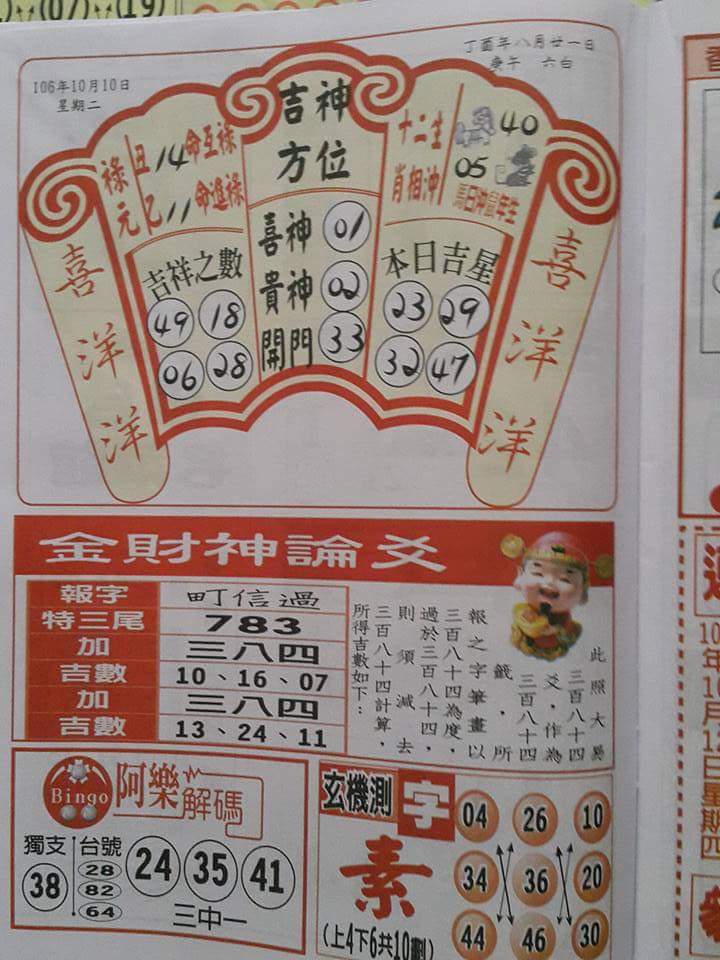 (07)
(19)
106年10月10日
星期二
丁酉年八月廿一日
庚午 六白
吉神
方位
祿元
丑14命互祿
乙11命進祿
十二生
肖相沖
40
05
馬日沖鼠年生
喜神 01
貴神 02
開門 33
吉祥之數
49 18
06 28
本日吉星
23 29
32 47
喜洋洋
喜洋洋
金財神論爻
報字 町信過
特三尾 783
加 三八四
吉數 10、16、07
加 三八四
吉數 13、24、11
此照大易
三百八十四
爻,作為
三百八十四
籤,所
報之字筆畫以
三百八十四為度,
過於三百八十四,
則須減去
三百八十四計算,
所得吉數如下:
Bingo 阿樂解碼
獨支
38
台號
28
82
64
24 35 41
三中一
玄機測字
素
(上4下6共10劃)
04 26 10
34 36 20
44 46 30